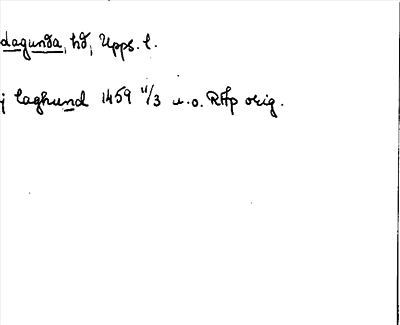 Lagunda, hd, Upps. l.
j laghund 1459 11/3 u.o. RAp orig.